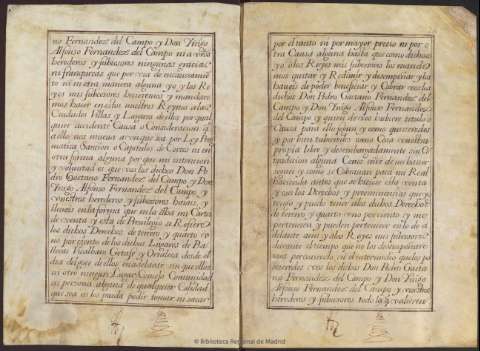 no Fernandez del Campo y Don Iñigo
Alfonso Fernandez del Campo ni a vros
herederos y subcesores ningunas gracias
ni franquezas que por via de encavezamien
to ni en otra manera alguna yo y los Re
yes mis subcesores hicieremos y mandare
mos hacer en estos nuestros Reynos a las
Ciudades Villas y Lugares dellos por qual
quier accidente Causa o Consideracion q
a ello nos mueva aunque sea por Ley Pre
matica Sancion o Capitulos de Cortes ni en
otra forma alguna por que mi intencion
y voluntad es que vos los dichos Don Pe
dro Caetano Fernandez del Campo y Don
Iñigo Alfonso Fernandez del Campo y
vuestros herederos y subcesores haiais y
lleveis en la forma que en la dha mi Carta
de venta y esta de Privilegio se Refiere
los dichos Derechos de tercero y quarto v
no por ciento de los dichos Lugares de
dia del goze dellos en adelante sin que ellos
ni otro ningun Lugar Concejo Comunidad
ni persona alguna de qualquier Calidad
que sea os los pueda pedir tomar ni sacar
por el tanto ni por mayor precio ni por o
tra Causa alguna hasta que como dicho es
yo o los Reyes mis subcesores los mandare
mos quitar y Redimir y desempeñar y los
haveis de poder beneficiar y Cobrar vos los
dichos Don Pedro Caetano Fernandez del
Campo y Don Iñigo Alfonso Fernandez
del Campo y quien de vos hubiere titulo o
Causa para ello segun y como quisieredes
y por bien tuvieredes como Cosa vuestra
propia libre y desembarazadamente sin li
mitacion alguna Como
sones y como se Cobravan para mi Real
Hacienda antes que se hiciese esta venta
y con los Derechos y preeminencias que yo
tengo y puedo tener a los dichos Derechos
de tercero y quarto uno por ciento y me
pertenecen y pueden pertenecer en lo de a
delante a mi y a los Reyes mis subcesores
durante el tiempo que no los desempeñare
mos percibiendo el interes dellos los po
seeredes vos los dichos Don Pedro Caeta
no Fernandez del Campo y Don Iñigo
Alfonso Fernandez del Campo y vuestros
herederos y subcesores todo lo q valieren
© Biblioteca Regional de Madrid